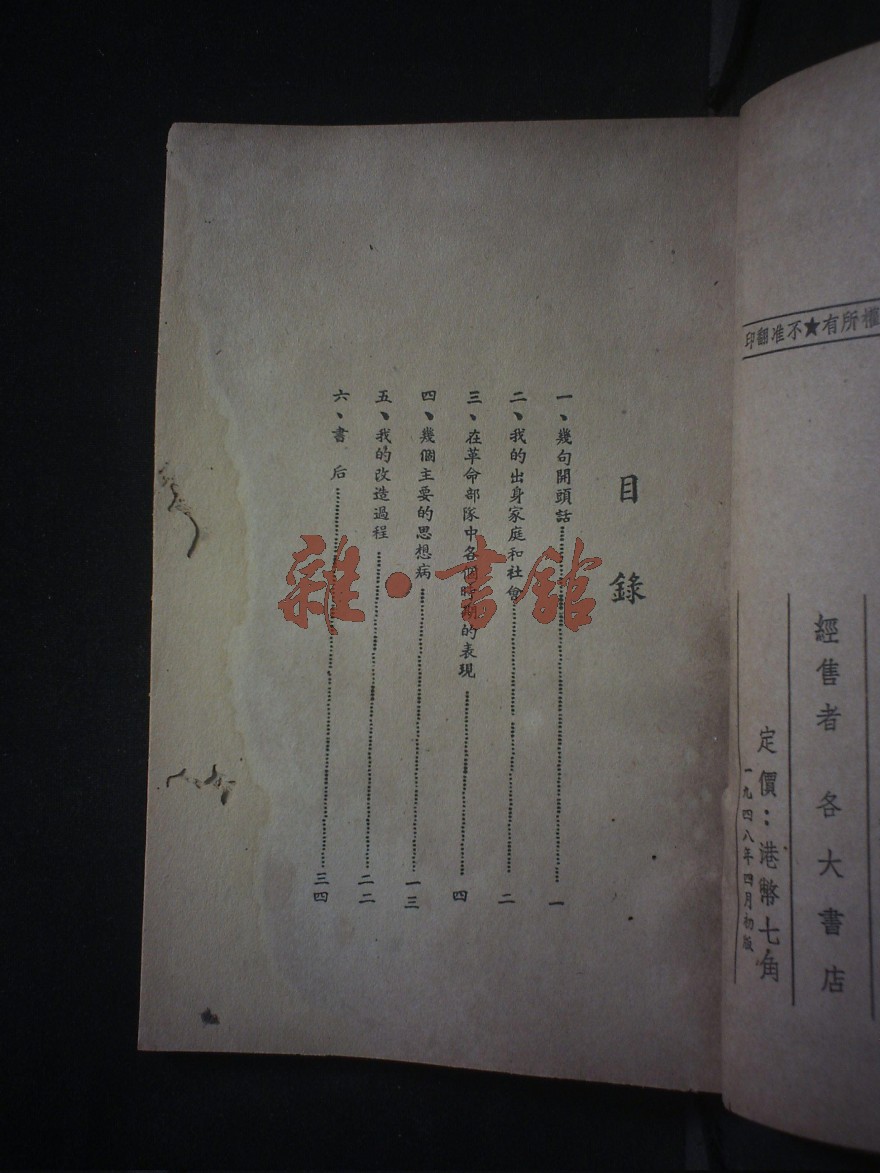 權所有★不准翻印
經售者 各大書店
定價：港幣七角
一九四八年四月初版
目錄
一、幾句開頭話……一
二、我的出身家庭和社會……二
三、在革命部隊中各個時期的表現……四
四、幾個主要的思想病……一三
五、我的改造過程……二二
六、書 后……三四
雜·書館